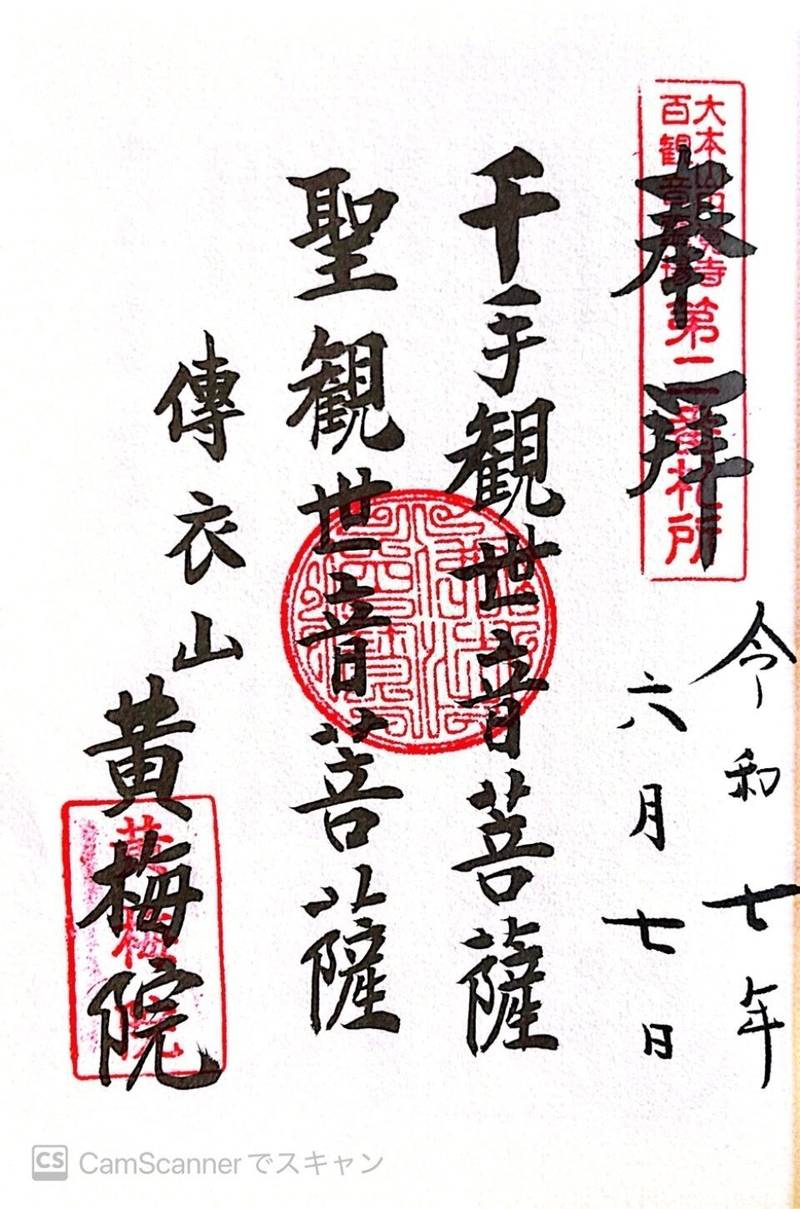 奉拝
大本山円覚寺
百観音霊場
第二番札所
令和七年
六月七日
千手観世音菩薩
聖観世音菩薩
傳衣山
黄梅院
黄梅院
CS CamScannerでスキャン